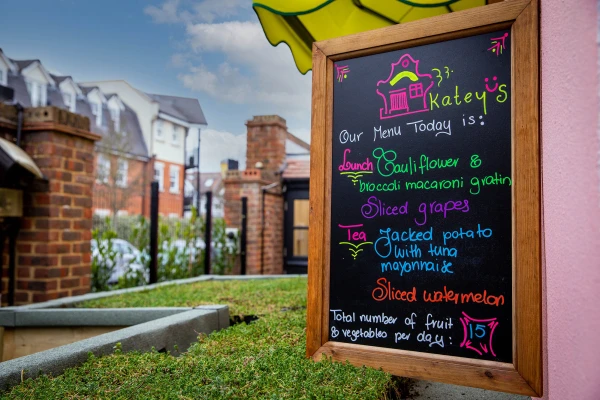 Katey's
Our Menu Today is:
Lunch Cauliflower &
broccoli macaroni gratin
Sliced grapes
Tea Jacked potato
with tuna
mayonnaise
Sliced watermelon
Total number of fruit
& vegetables per day: 15